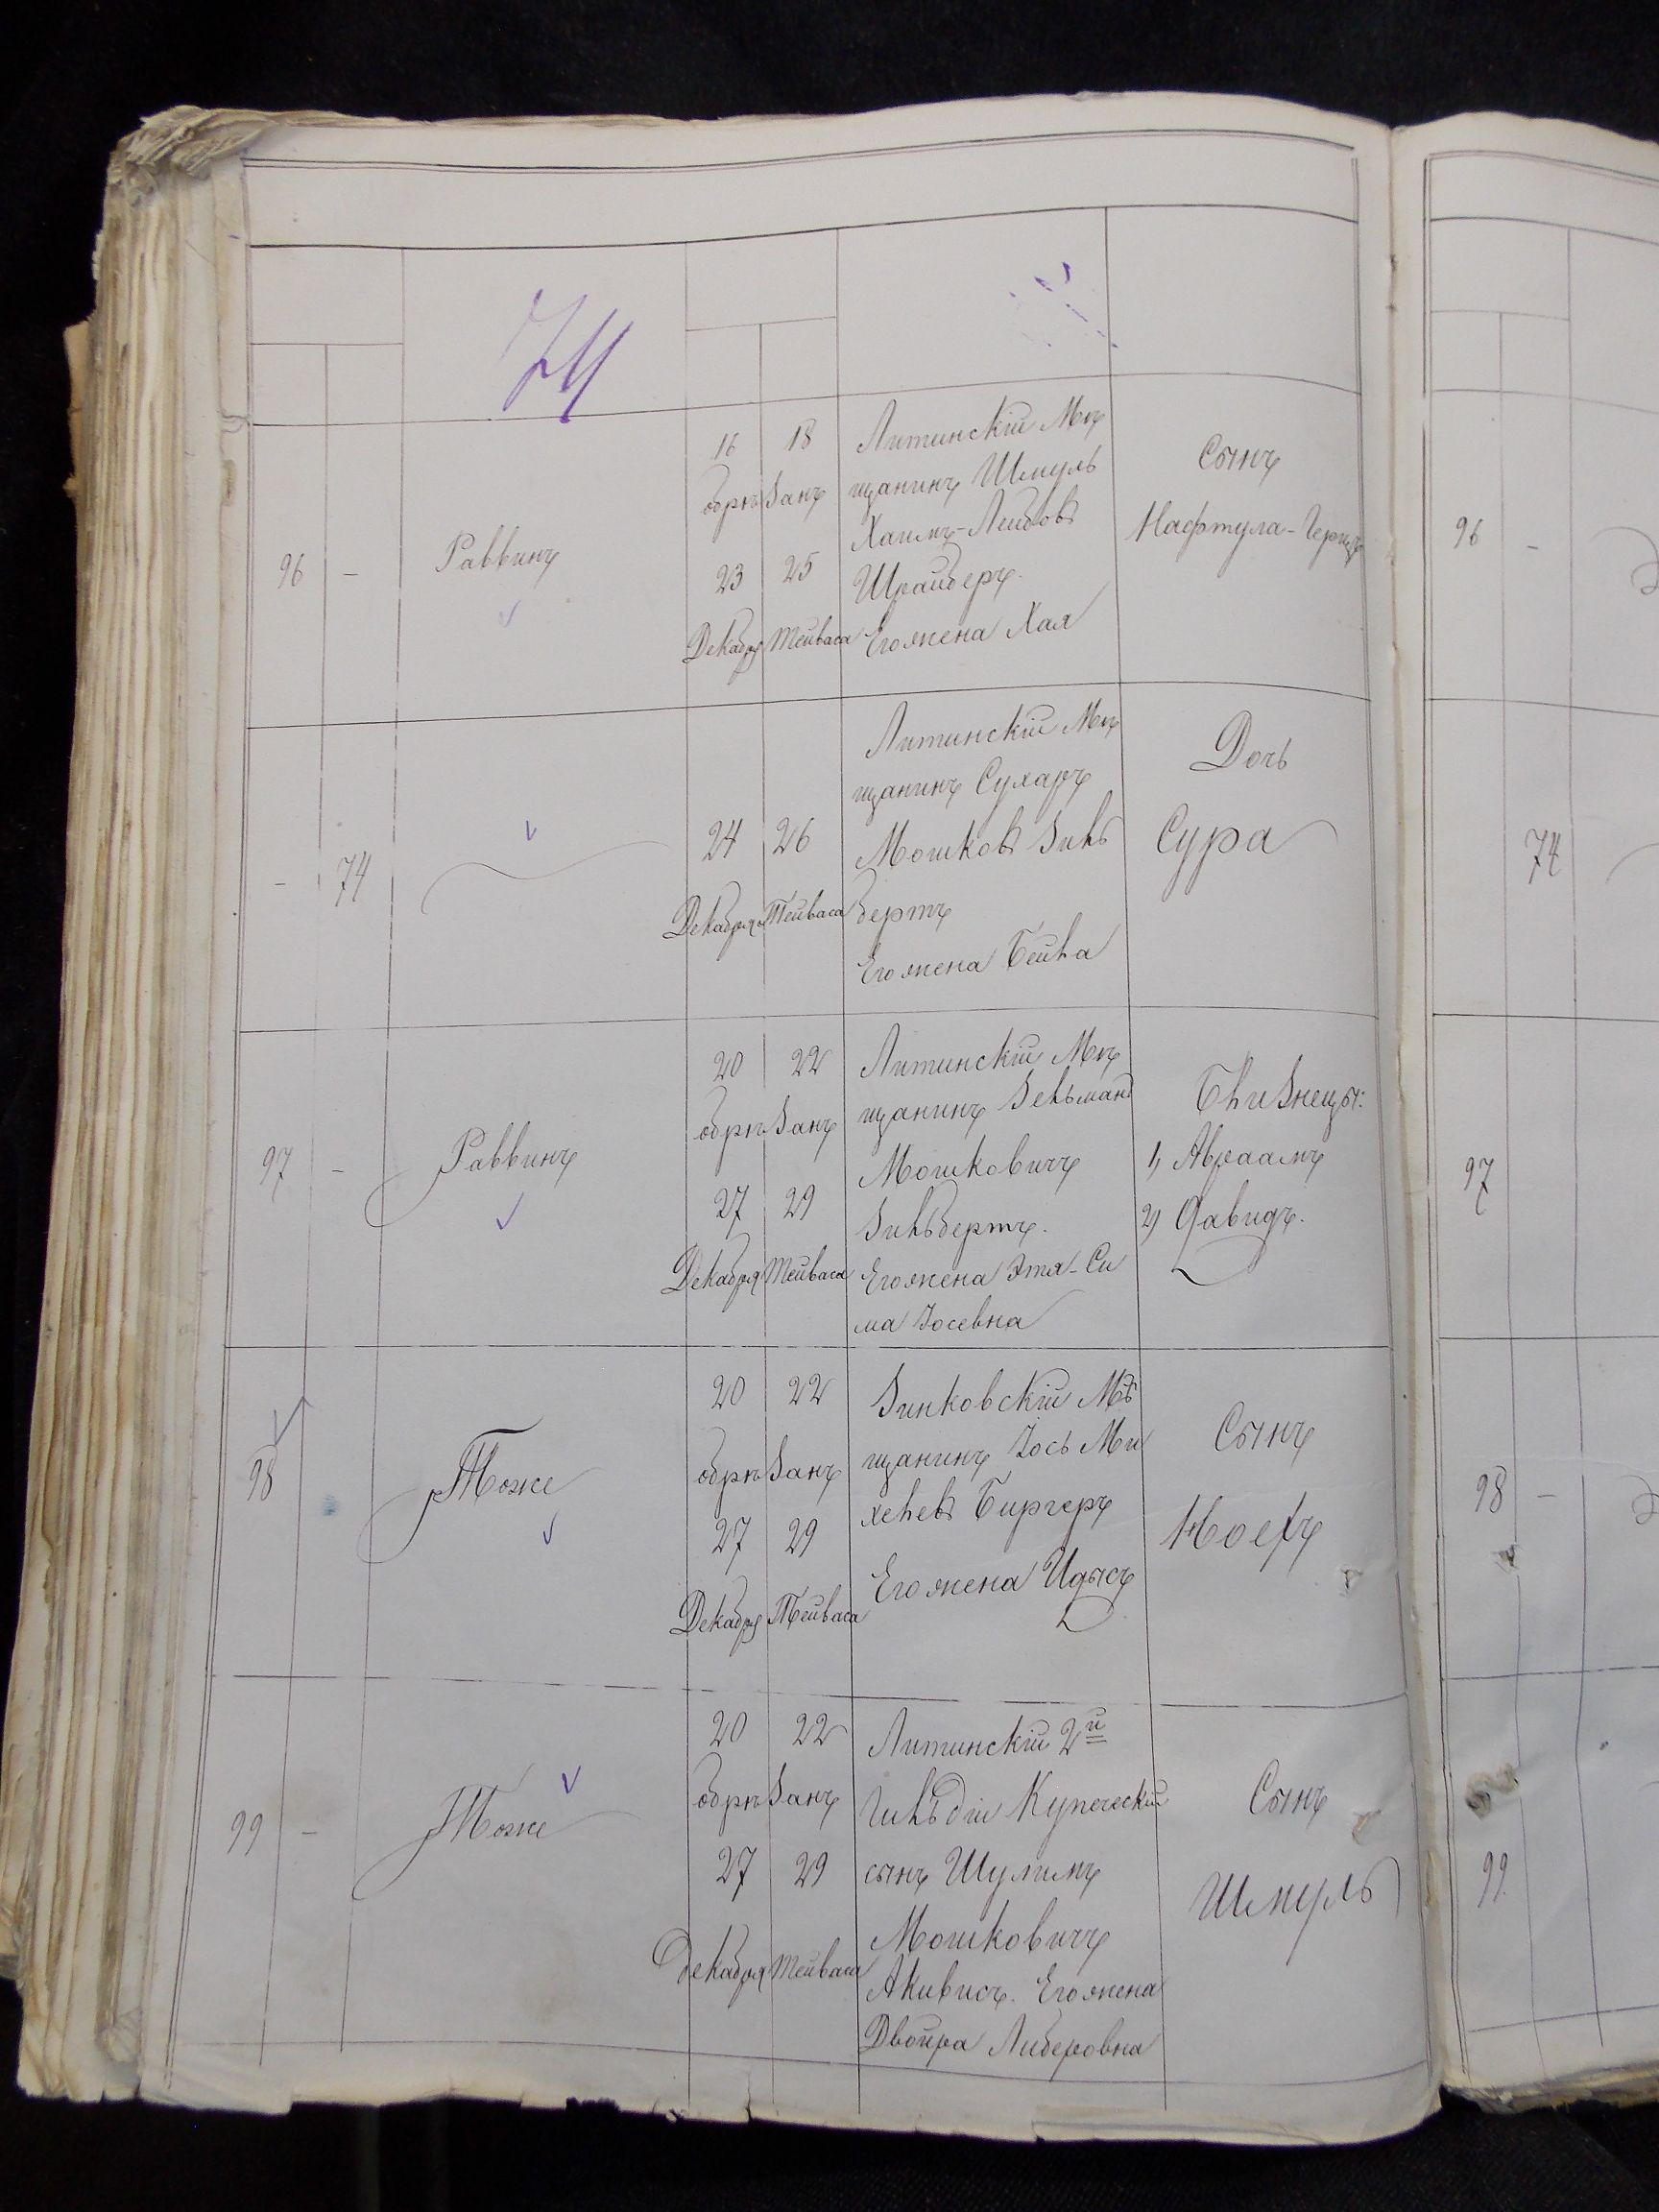 74
96
-
Раввинъ
16
18
обрѣзанъ
23
25
Декабря
Тейваса
Литинскій Мѣ
щанинъ Шмуль
Хаимъ-Лейбовъ
Шрайберъ.
Его жена Хая
Сынъ
Нафтула-Герцъ
-
74
24
26
Декабря
Тейваса
Литинскій Мѣ
щанинъ Сухаръ
Мошковъ Зиль
бертъ
Его жена Бейла
Дочь
Сура
97
-
Раввинъ
20
22
обрѣзанъ
27
29
Декабря
Тейваса
Литинскій Мѣ
щанинъ Зельманъ
Мошковичъ
Зильбертъ.
Его жена Этя-Си
ма Іосевна
Близнецы:
1, Авраамъ
2, Давидъ.
98
Тоже
20
22
обрѣзанъ
27
29
Декабря
Тейваса
Зинковскій Мѣ
щанинъ Іось Ми
хелевъ Биргеръ
Его жена Идысъ
Сынъ
Ноехъ
99
-
Тоже
20
22
обрѣзанъ
27
29
Декабря
Тейваса
Литинскій 2й
Гильдіи Купеческій
сынъ Шулимъ
Мошковичъ
Акивисъ. Его жена
Двойра Либеровна
Сынъ
Шмуль
96
-
74
97
98
-
99